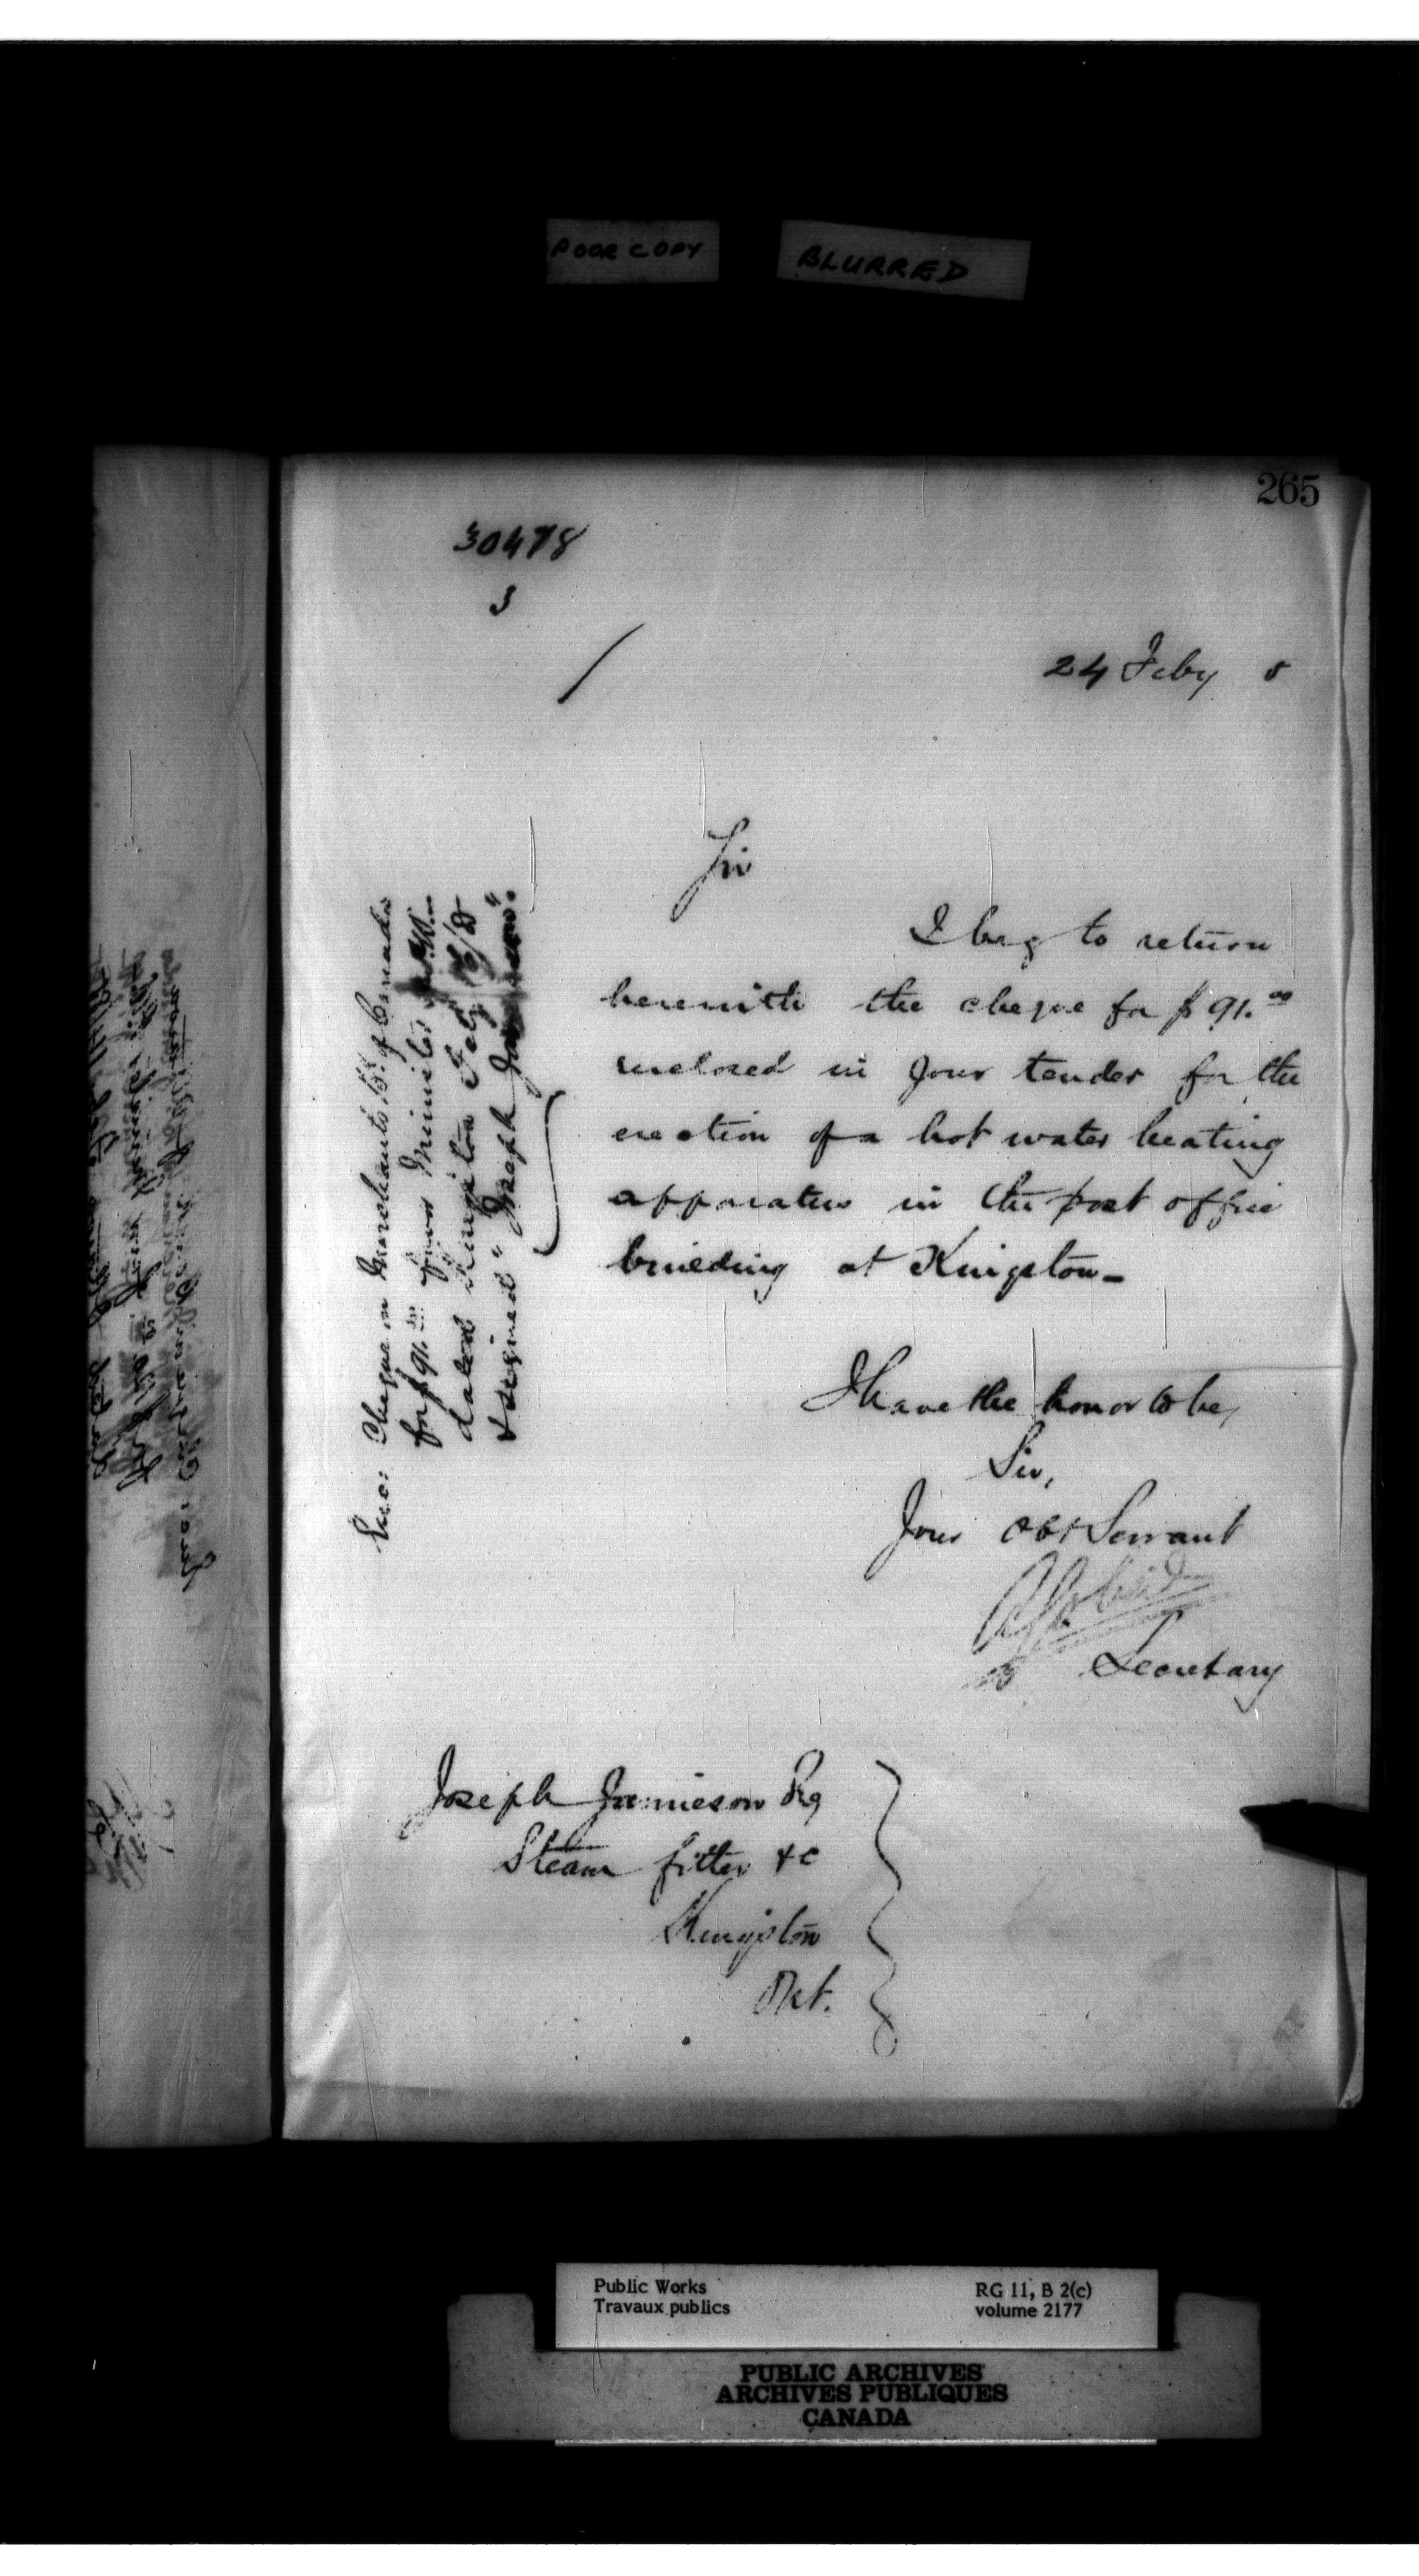 POOR COPY
BLURRED
265
30478
3
24 Feby 5
Sir
I beg to return
herewith the cheque for $91.00
enclosed in your tender for the
erection of a hot water heating
apparatus in the post office
building at Kingston_
I have the honor to be,
Sir,
Your Obt Servant
Secretary
Enc: Cheque on Merchants Bk of Canada
for $91.00 favor Minister P.W.
dated Kingston Feby
& signed "Joseph Jamieson".
Joseph Jamieson Esq
Steam fitter &c
Kingston
Ont.
Public Works
Travaux publics
RG 11, B 2(c)
volume 2177
PUBLIC ARCHIVES
ARCHIVES PUBLIQUES
CANADA